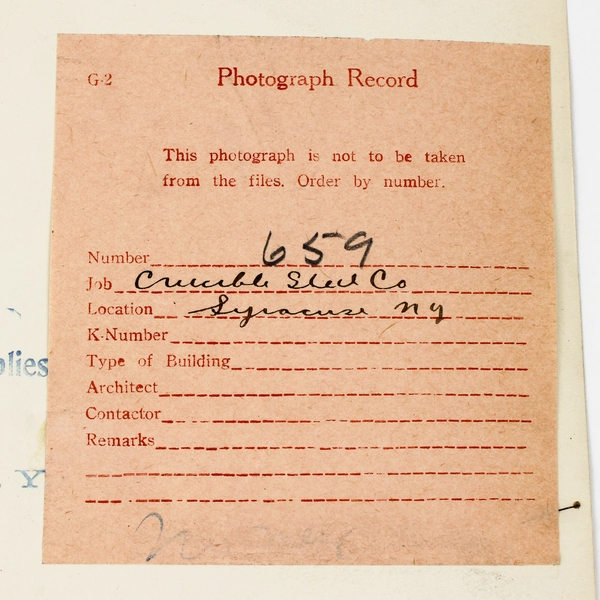 G-2 Photograph Record
This photograph is not to be taken
from the files. Order by number.
Number 659
Job Crucible Steel Co
Location Syracuse NY
K-Number
Type of Building
Architect
Contactor
Remarks
plies
Y